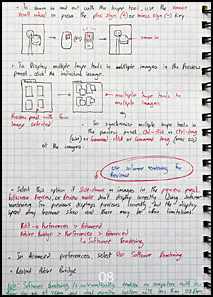 • To zoom in and out with the loupe tool, use the mouse
scroll wheel or press the plus sign (+) or minus sign (-) key
zoom in
• To Display multiple loupe tools in multiple images in the Preview
panel, click the individual image.
multiple loupe tools to
multiple images
Preview panel with four
images selected
• To synchronize multiple loupe tools in
the preview panel, ctrl-click or ctrl-drag
(win) or command-click or command drag (mac) one
of the images
Use Software rendering for
Previews
• Select this option if slide-shows or images in the preview panel,
fullscreen preview, or review mode don't display correctly. Using software
rendering for previews displays previews correctly, but the display
speed may become slow and there may be other limitations.
Edit → Preferences → Advanced
Adobe Bridge → Preferences → Advanced
↳ Software Rendering
• In Advanced preferences, Select Use Software Rendering
• Restart Adobe Bridge
08
Note: Software Rendering is automatically enabled on computers with less